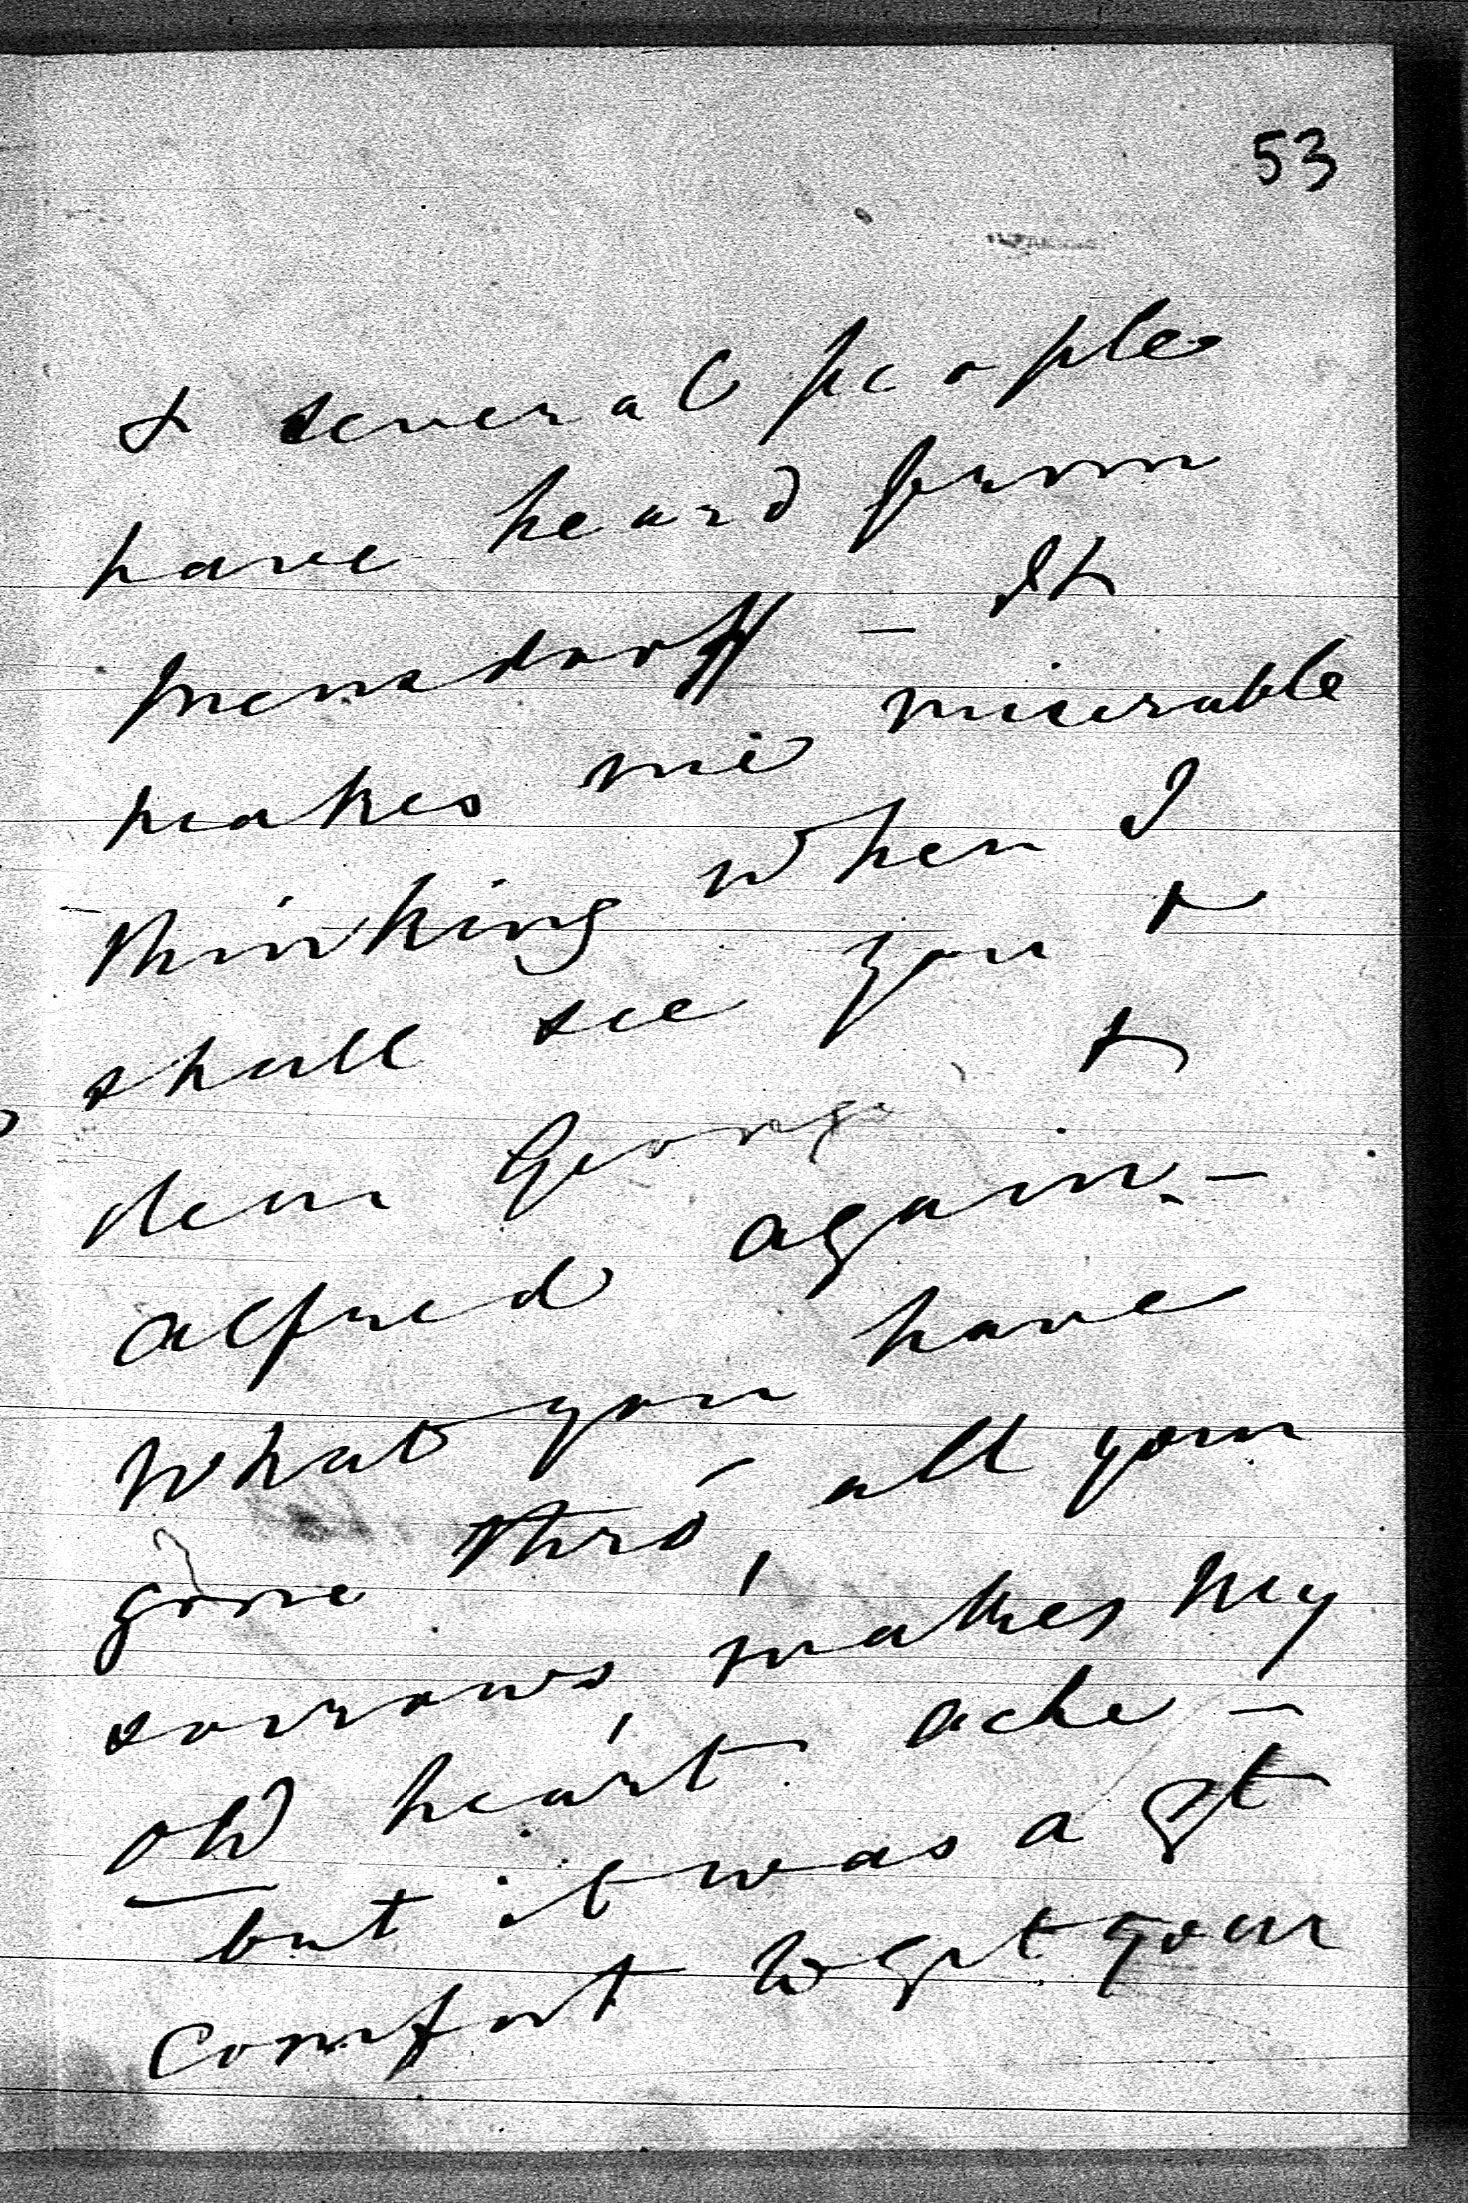 53
& several people
have heard from
Mensdorff – It
makes me miserable
thinking when I
shall see you &
dear George &
Alfred again. –
What you have
gone thro', all your
sorrows, makes my
old heart ache –
but it was a gt
comfort to get your